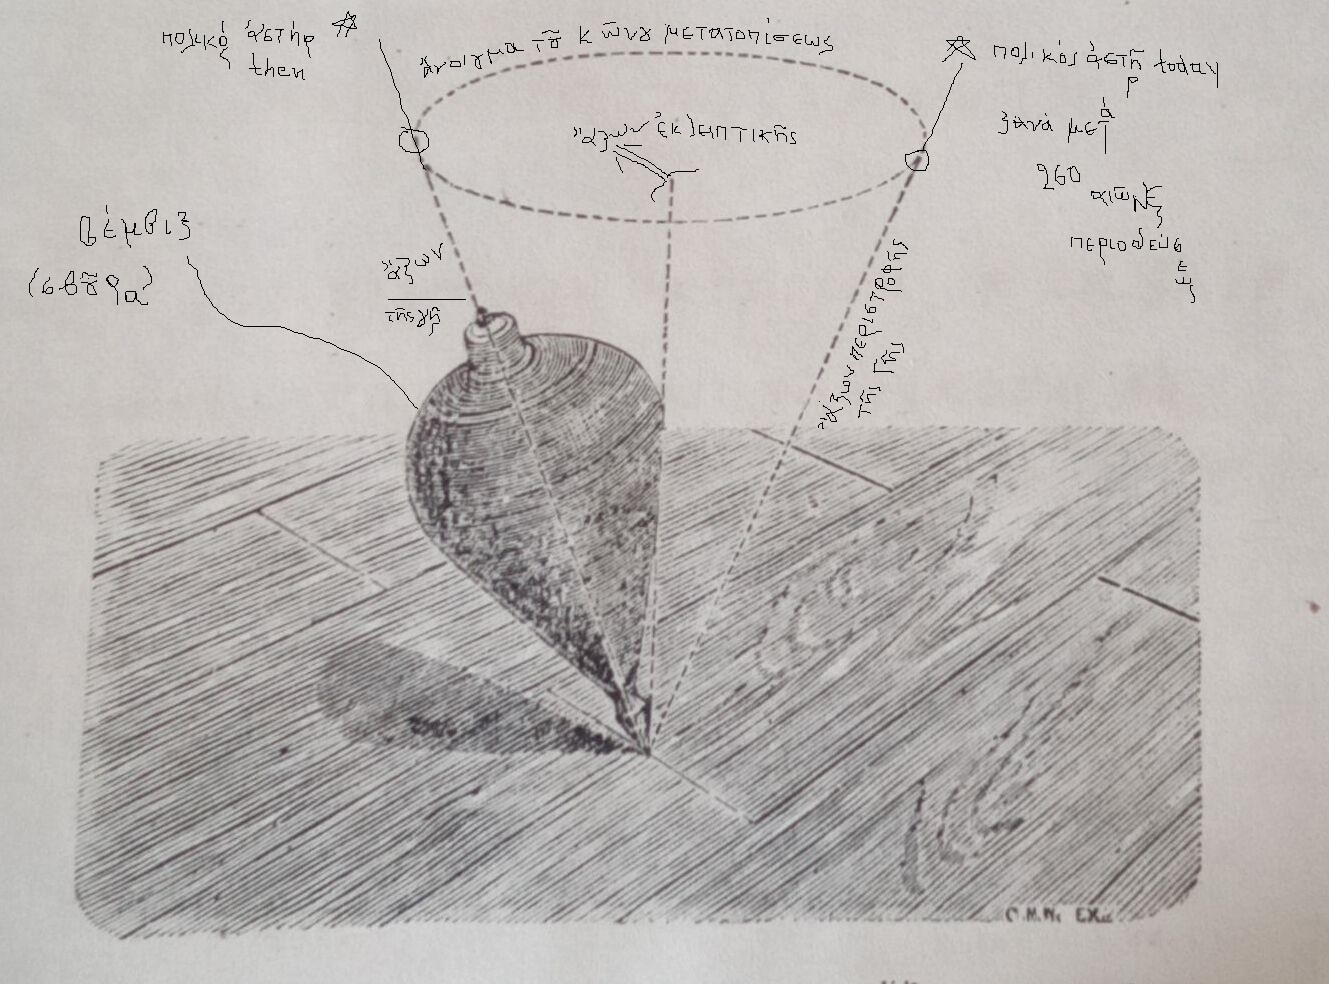 πολικὸς ἀστὴρ
then
ἄνοιγμα τοῦ κώνου μετατοπίσεως
πολικὸς ἀστὴρ today
ξανὰ μετὰ
260
αἰῶνες
περιοδεύσεως
ἄξων ἐκλειπτικῆς
βέμβιξ
(σβοῦρα)
ἄξων
τῆς γῆς
ἄξων περιστροφῆς
τῆς Γῆς